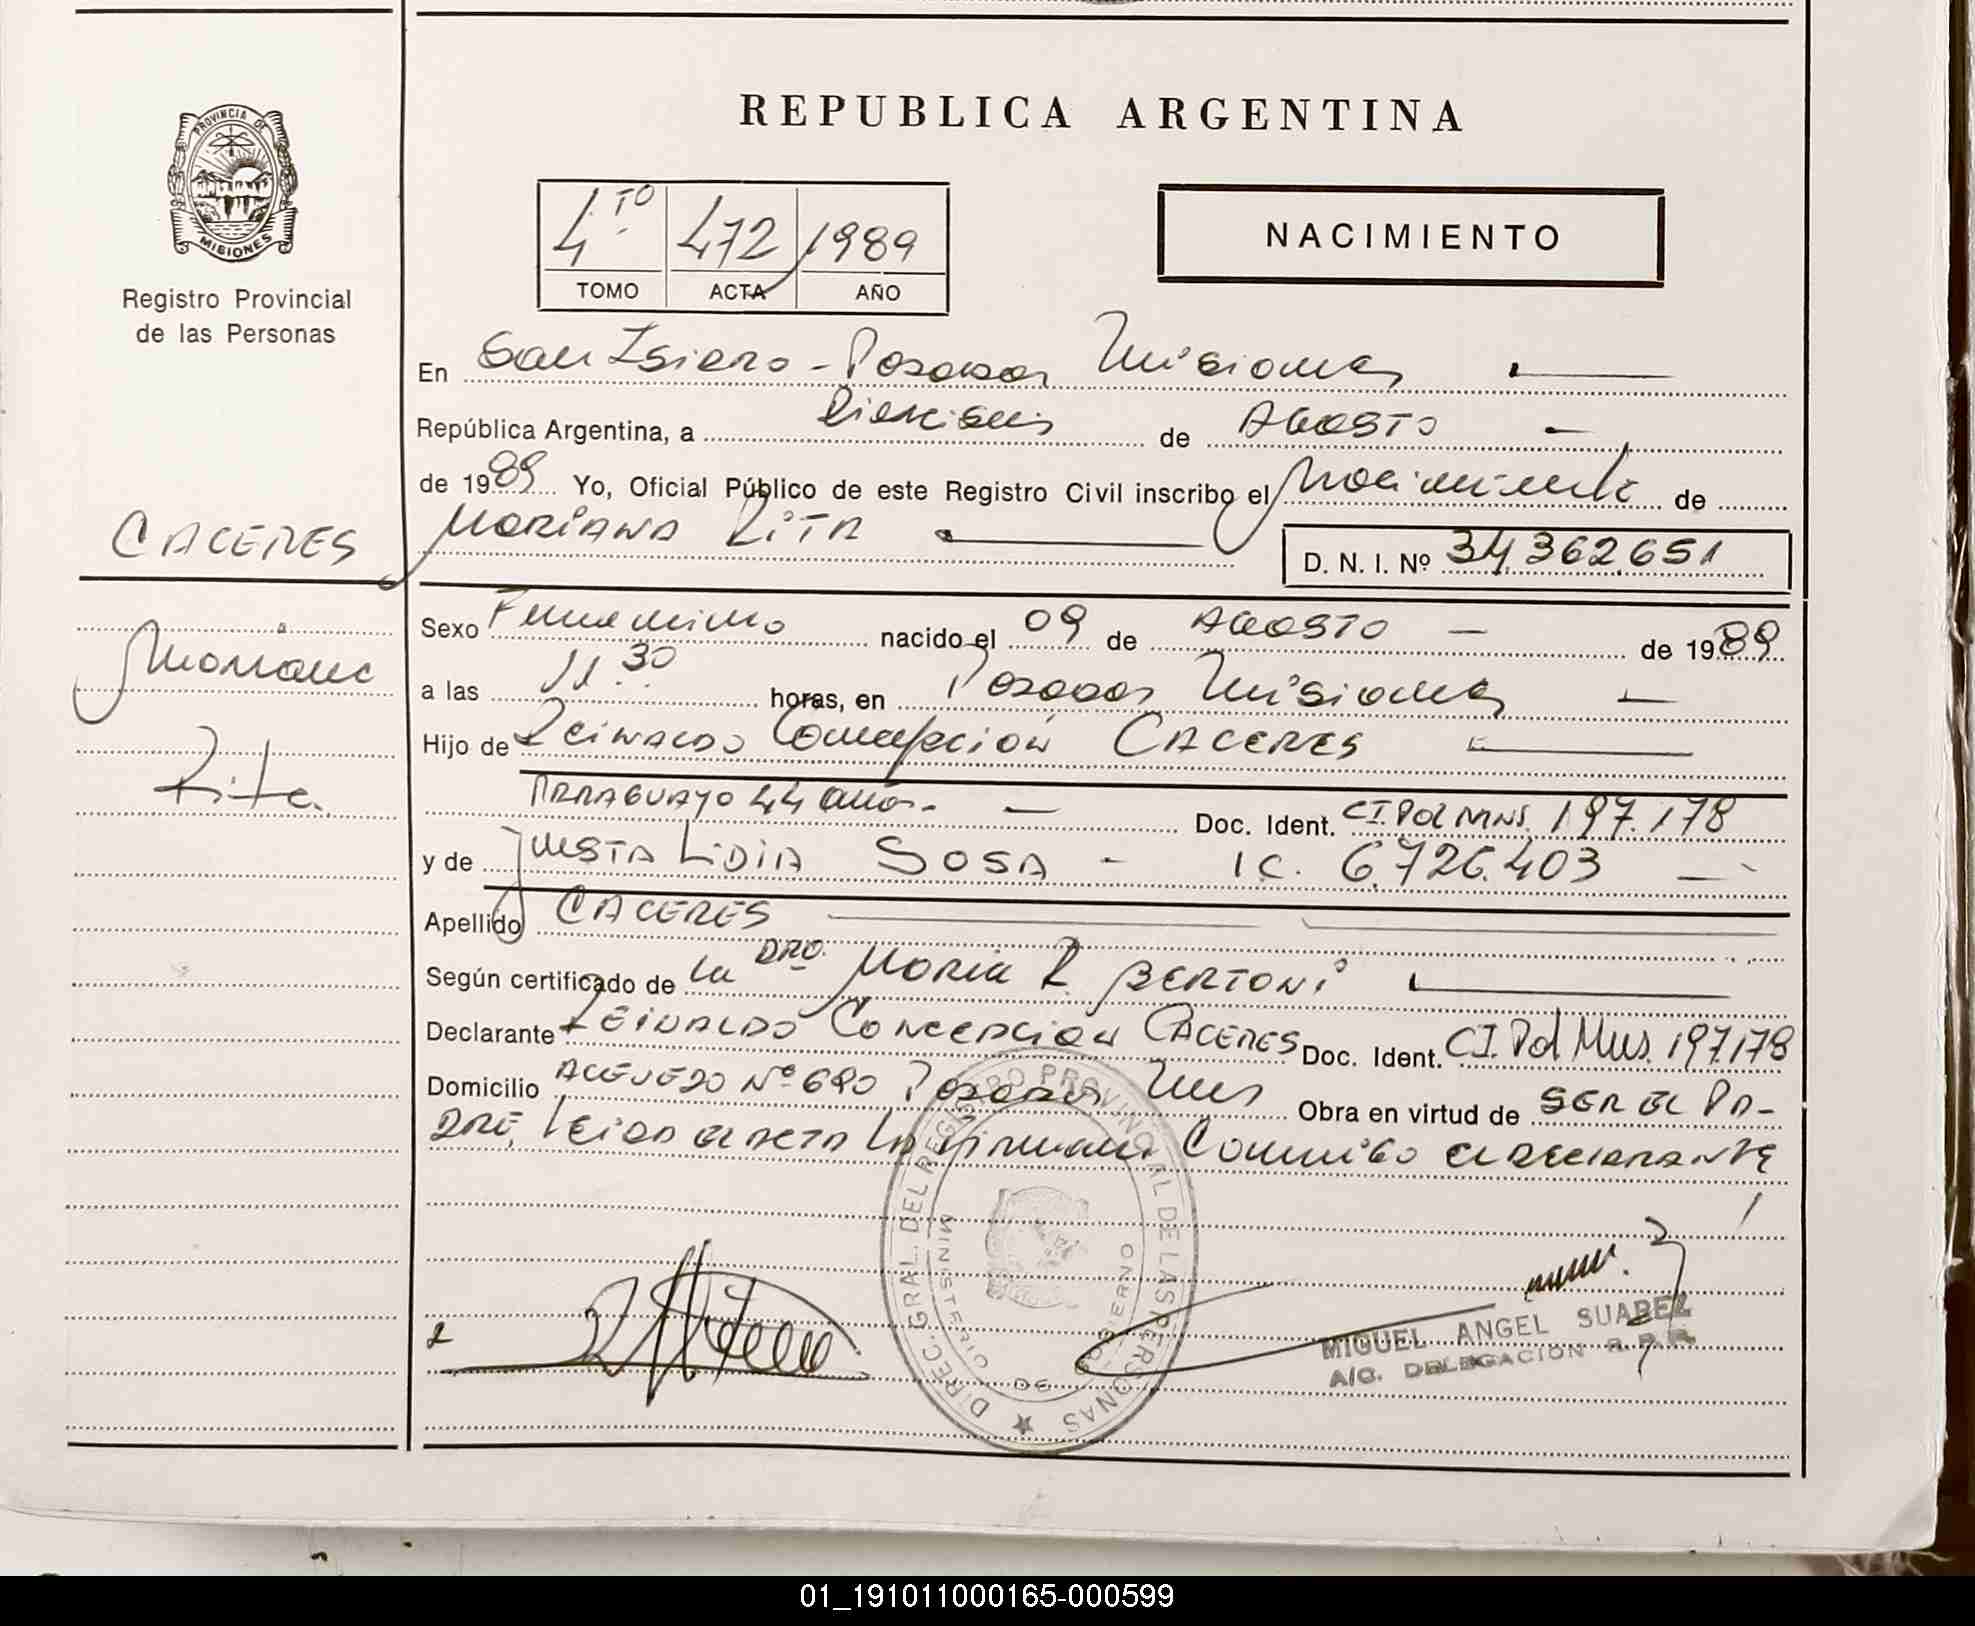 REPUBLICA ARGENTINA
PROVINCIA DE
MISIONES
Registro Provincial
de las Personas
4TO 472 1989
TOMO ACTA AÑO
NACIMIENTO
En San Isidro - Posadas Misiones
República Argentina, a Dieciseis de AGOSTO -
de 1989 Yo, Oficial Público de este Registro Civil inscribo el Nacimiento de
CACERES
MARIANA RITA
D. N. I. Nº 34.362.651
Mariana
Rita.
Sexo Femenino nacido el 09 de AGOSTO - de 1989
a las 11.30 horas, en Posadas Misiones -
Hijo de Reinaldo Concepción CACERES
PARAGUAYO 44 años. - Doc. Ident. C.I. Pol MNS. 197.178
y de JUSTA LIDIA SOSA - I C. 6.726.403 -
Apellido CACERES
Según certificado de la DRA. MARIA R. BERTONI
Declarante REINALDO CONCEPCION CACERES Doc. Ident. C.I. Pol Mns. 197.178
Domicilio ACEVEDO Nº 690 Posadas Mns Obra en virtud de SER EL PA-
DRE, LEIDA EL ACTA LA firman Conmigo EL DECLARANTE
DIREC. GRAL. DEL REGISTRO PROVINCIAL DE LAS PERSONAS
MINISTERIO DE GOBIERNO
MIGUEL ANGEL SUAREZ
A/C. DELEGACION R.P.P.
01_191011000165-000599